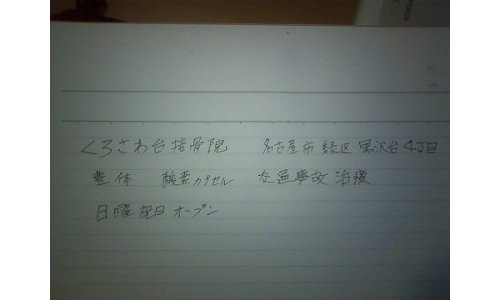 くろさわ台接骨院 名古屋市緑区黒沢台4丁目
整体 酸素カプセル 交通事故治療
日曜祝日オープン